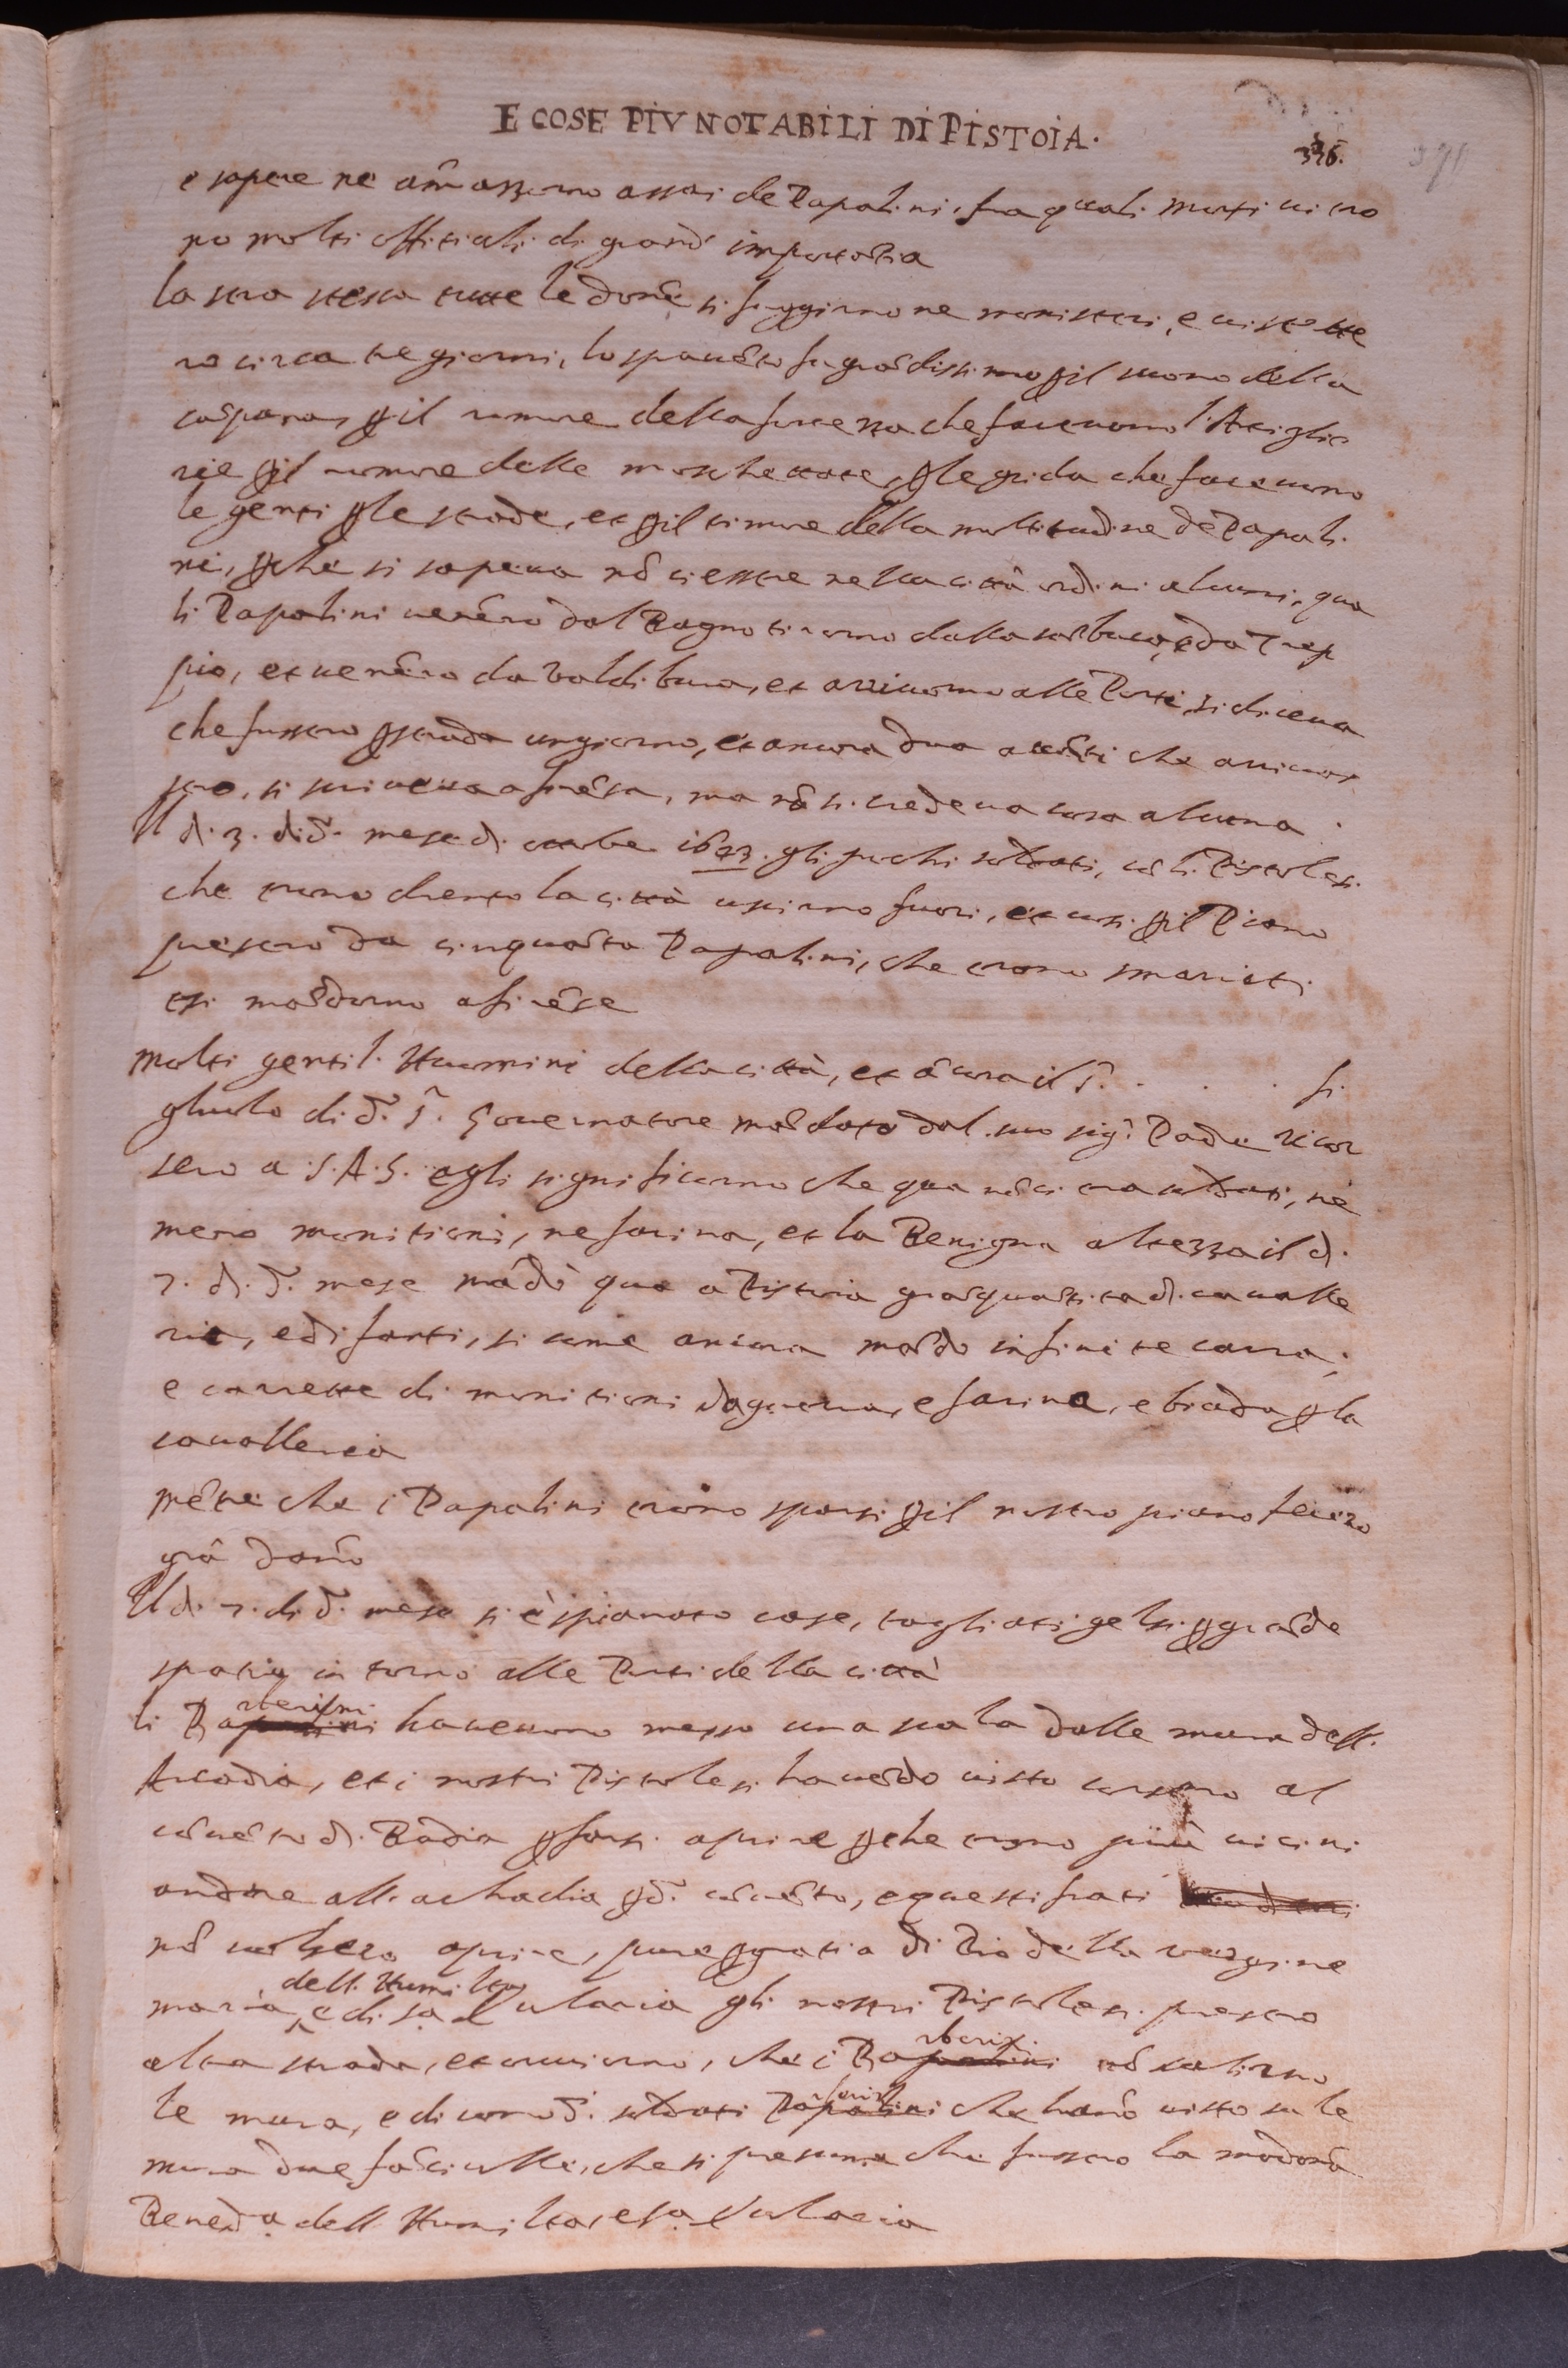 E COSE PIV NOTABILI DI PISTOIA.
336. 391
e sapere ne am̃azzorno assai de Papalini, fra quali morti ui ero
no molti offitiali di grand' importãtia
la sera stessa tutte le don̄e si fuggirno ne monisteri, e ui stette
ro circa tre giorni, lo spauẽto fu grãdissimo ꝑ il suono della
cãpana, ꝑ il rumore della fortezza che faceuono l'Artiglie
rie ꝑ il romore delle moschettate, ꝑ le grida che faceuono
le genti ꝑ le strade, et ꝑ il timore della moltitudine de Papali
ni, ꝑche si sapeua nõ ci essere nella città ordini alcuni, qua
li Papalini uenẽro dal Bagno ti rorno dalla sãbuca, e da Trep
pio, et uenẽro da Valdibura, et arriuorno alle Porte, si diceua
che fussero ꝑ strada un giorno, et ancora dua auãti che arriuas
sero, si scriueua a firẽza, ma nõ si credeua cosa alcuna.
Il dì 3. di d.º mese di ottobe 1643. gli pochi soldati, cõ li Pistolesi
che erono drento la città uscirno fuori, et cosi ꝑ il Piano
presero da cinquãta Papalini, che erono smariti
e si mãdorno a firẽze
Molti gentil'Huomini della città, et ãcora il S. . . . fi
gliuolo di d. S. Gouernatore mãdato dal suo sig.r Padre ricor
sero a S.A.S. e gli significorno che qua nõ ci era soldati, ne
meno munitioni, ne farina, et la Benigna altezza il dì
7. di d. mese mãdò qua a Pistoia grãquãtità di caualle
ria, e di fanti, si come ancora mãdò infinite carra,
e carrette di munitioni da guerra, e farina, e biada ꝑ la
caualleria
mẽtre che i Papalini erono sparsi ꝑ il nostro piano fecero
grã dan̄o
Il dì 7. di d. mese si è spianato case, tagliati gelsi ꝑ grãde
spatio in torno alle Porti della città
rberini
li Bapalini haueuono messo una scala dalle mura dell'
Arcadia, et i nostri Pistolesi hauẽdo uisto corsero al
cõuẽto di Badia ꝑ farsi aprire ꝑche erono più uicini
andare all'achadia ꝑ d. cõuẽto, e questi frati
nõ uolsero aprire, pure ꝑ gratia di Dio della vergine
dell'Humiltà,
maria, e di s.a Eulalia gli nostri Pistolesi presero
rberini
altra strada, et ouuiorno, che i Bapalini nõ salirno
rberini
le mura, e dicono d. soldati Papalini che han̄o uisto su le
mura due fãciulle, che si presume che fussero la madon̄a
Bened.a dell'Humiltà, e s.a Eulalia